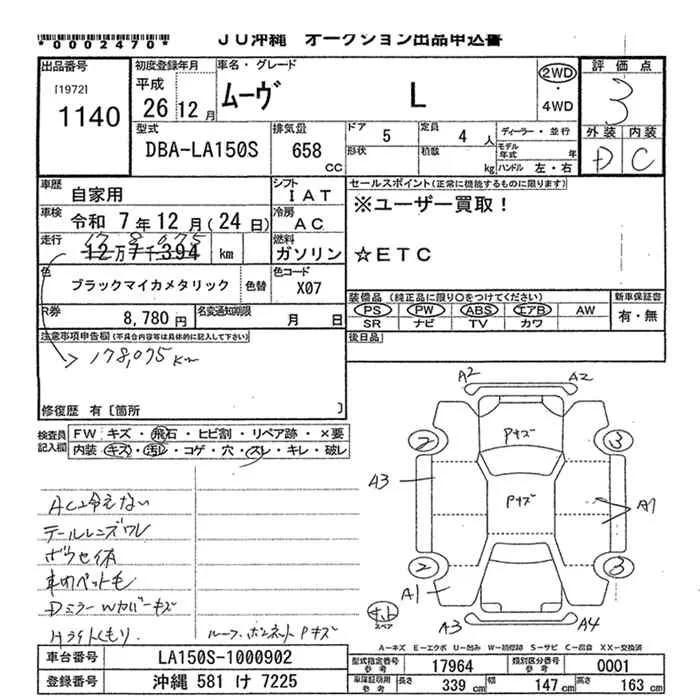 *0002470*
JU沖縄 オークション出品申込書
出品番号
[1972]
1140
初度登録年月
平成
26 12月
車名・グレード
ムーヴ L
2WD
・
4WD
評価点
3
外装 内装
D C
型式
DBA-LA150S
排気量
658
CC
ドア 5
定員 4 人
形状
積数 kg
ディーラー・並行
モデル年式 年
ハンドル 左・右
車歴
自家用
シフト
IAT
車検
令和 7年12月(24日)
冷房
AC
走行
17 8,075
12万7千394 km
燃料
ガソリン
色
ブラックマイカメタリック
色替
色コード
X07
R券
8,780円
名変通知期限
月 日
セールスポイント(正常に機能するものに限ります)
※ユーザー買取!
☆ETC
装備品(純正品に限り○をつけてください)
PS PW ABS エアB AW
SR ナビ TV カワ
新車保証書
有・無
後日品
注意事項申告欄(不具合内容等は具体的に記入して下さい)
178,075km
修復歴 有〔箇所 〕
検査員記入欄
FW キズ・飛石・ヒビ割・リペア跡・×要
内装 キズ・汚れ・コゲ・穴・スレ・キレ・破レ
AC冷えない
テールレンズワレ
ボウセイ体
車内ペット毛
Dミラー Wカバーキズ
Hライトくもり
ルーフ、ボンネットPキズ
A2 A2
2 3
Pキズ
A3
Pキズ
A1
2 3
A1
スペア
A3 A4
A-キズ E-エクボ U-凹み W-補修跡 S-サビ C-腐食 XX-交換済
車台番号
LA150S-1000902
登録番号
沖縄 581 け 7225
型式指定番号
参考
17964
類別区分番号
参考
0001
車庫証明用
参考
長さ 339 cm
幅 147 cm
高さ 163 cm